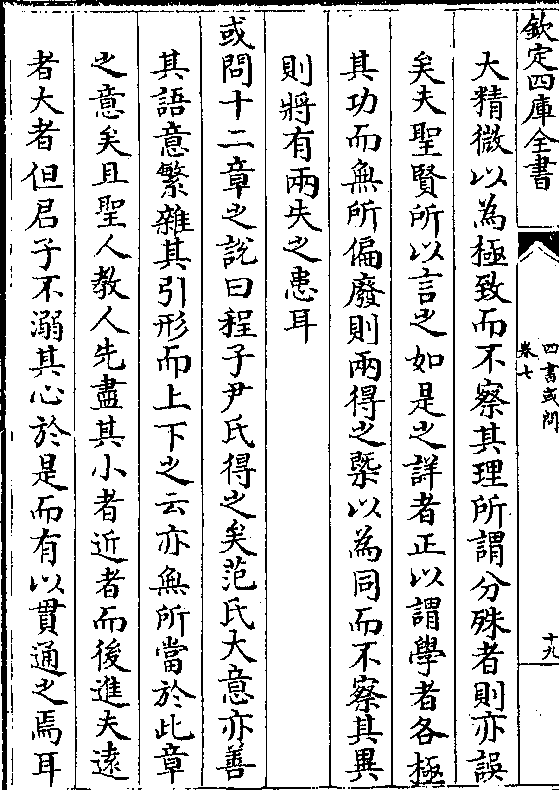 欽定四庫全書
四書或問
卷七
十九
大精微以為極致而不察其理所謂分殊者則亦誤
矣夫聖賢所以言之如是之詳者正以謂學者各極
其功而無所偏廢則兩得之槩以為同而不察其異
則將有兩失之患耳
或問十二章之說曰程子尹氏得之矣范氏大意亦善
其語意繁雜其引形而上下之云亦無所當於此章
之意矣且聖人教人先盡其小者近者而後進夫遠
者大者但君子不溺其心於是而有以貫通之焉耳